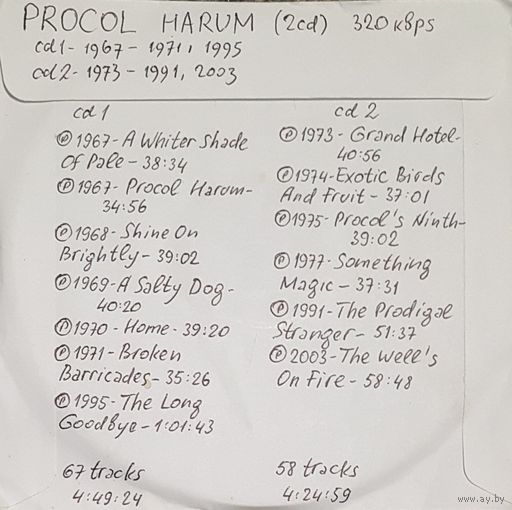 PROCOL HARUM (2cd) 320 KBps
cd1- 1967 - 1971, 1995
cd2- 1973 - 1991, 2003
cd 1
Ⓟ1967- A Whiter Shade
Of Pale - 38:34
Ⓟ1967- Procol Harum-
34:56
Ⓟ1968- Shine On
Brightly - 39:02
Ⓟ1969- A Salty Dog-
40:20
Ⓟ1970 - Home - 39:20
Ⓟ1971- Broken
Barricades - 35:26
Ⓟ1995- The Long
Goodbye - 1:01:43
67 tracks
4:49:24
cd 2
Ⓟ1973- Grand Hotel-
40:56
Ⓟ1974-Exotic Birds
And Fruit - 37:01
Ⓟ1975- Procol's Ninth-
39:02
Ⓟ1977- Something
Magic - 37:31
Ⓟ1991- The Prodigal
Stranger- 51:37
Ⓟ2003-The Well's
On Fire - 58:48
58 tracks
4:24:59
www.ay.by